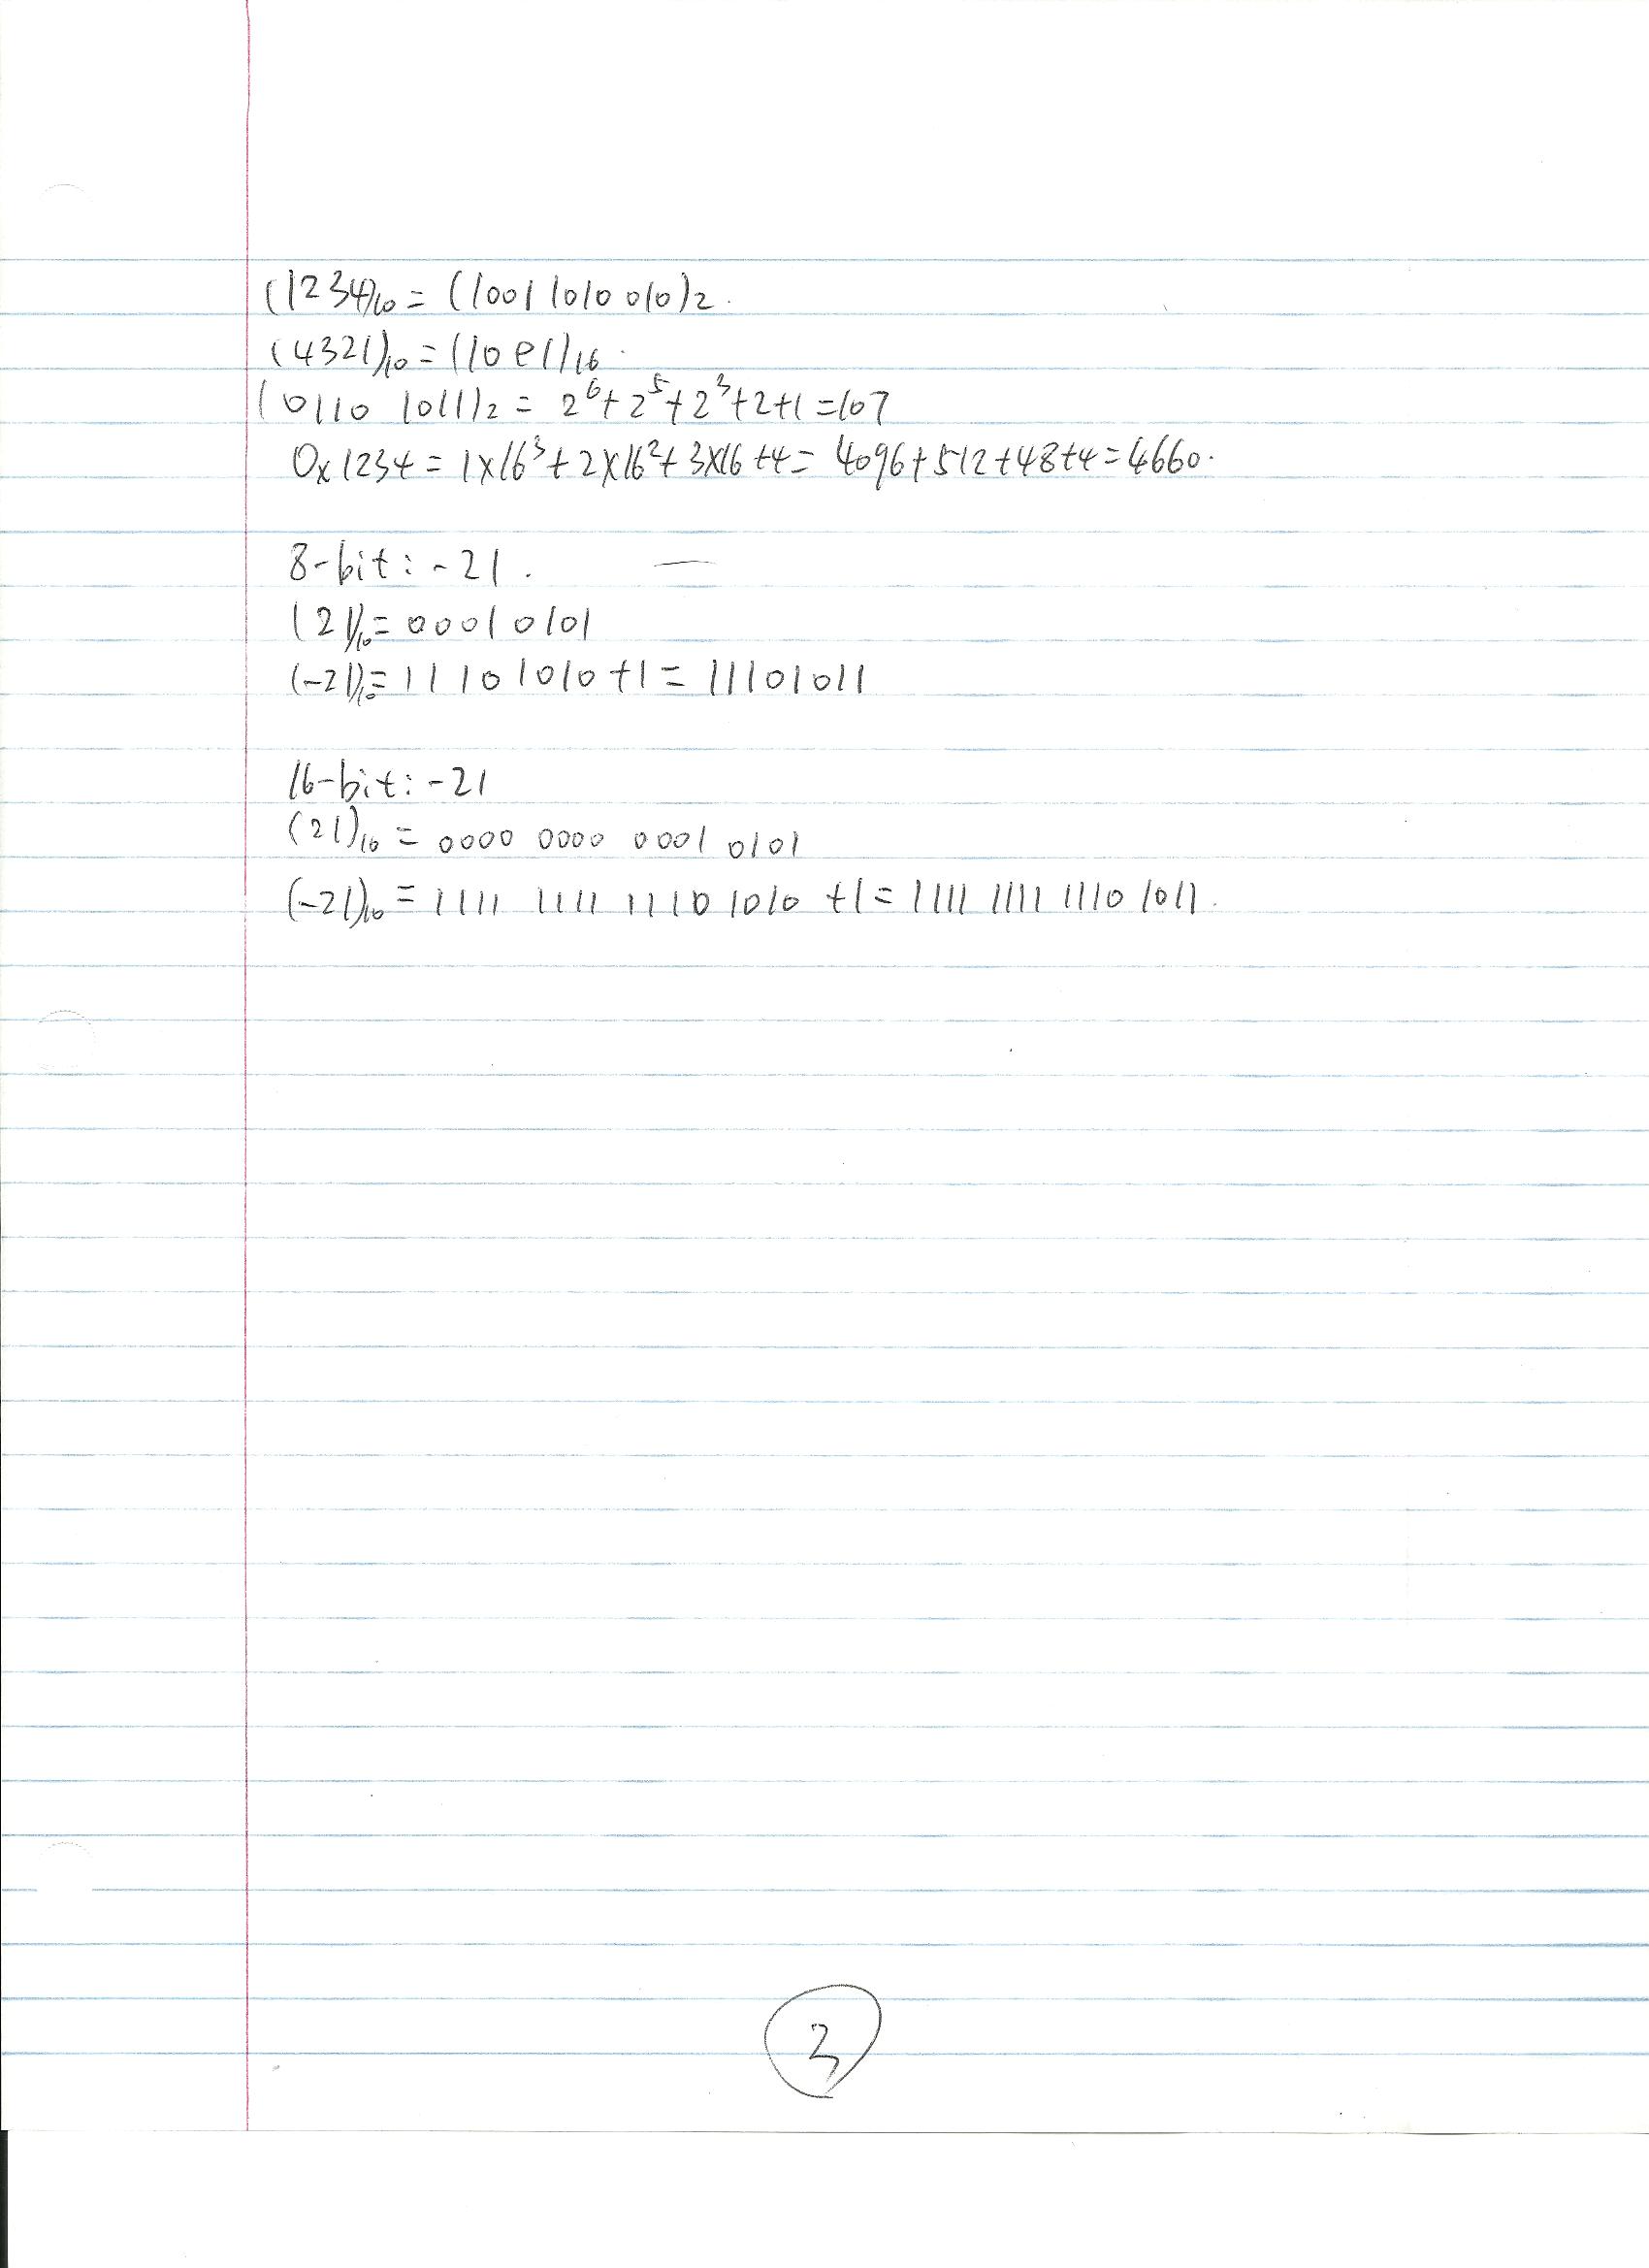 (1234)10 = (1001 1010 010)2.
(4321)10 = (10e1)16.
(0110 1011)2 = 2^6+2^5+2^3+2+1=107
0x1234 = 1×16^3+2×16^2+3×16+4= 4096+512+48+4=4660.
8-bit: -21.
(21)10= 00010101
(-21)10= 11101010+1= 11101011
16-bit: -21
(21)10 = 0000 0000 0001 0101
(-21)10 = 1111 1111 1110 1010 +1= 1111 1111 1110 1011.